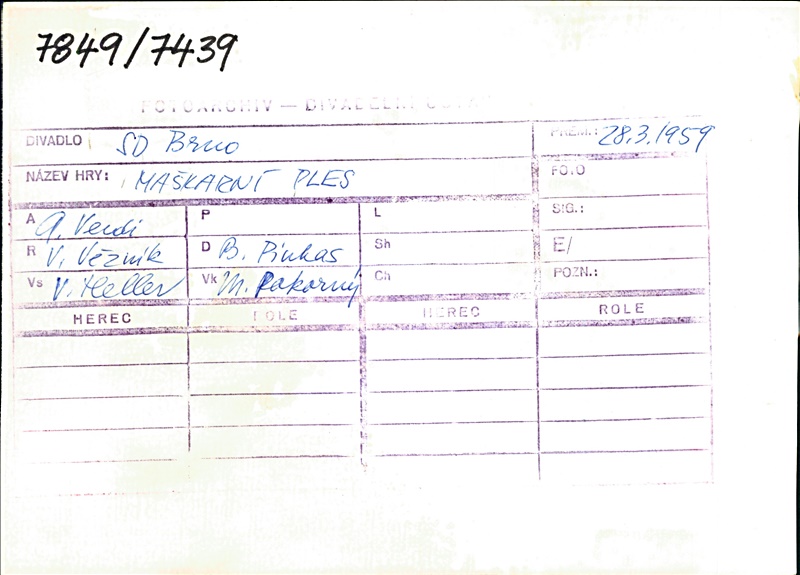 7849/7439
FOTOARCHIV — DIVADELNÍ
DIVADLO SD Brno
PREM.: 28.3.1959
NÁZEV HRY: MAŠKARNÍ PLES
FOTO
A G. Verdi P L SIG.:
R V. Věžník D B. Pinkas Sh E/
Vs V. Heller Vk M. Pokorný Ch POZN.:
HEREC ROLE HEREC ROLE